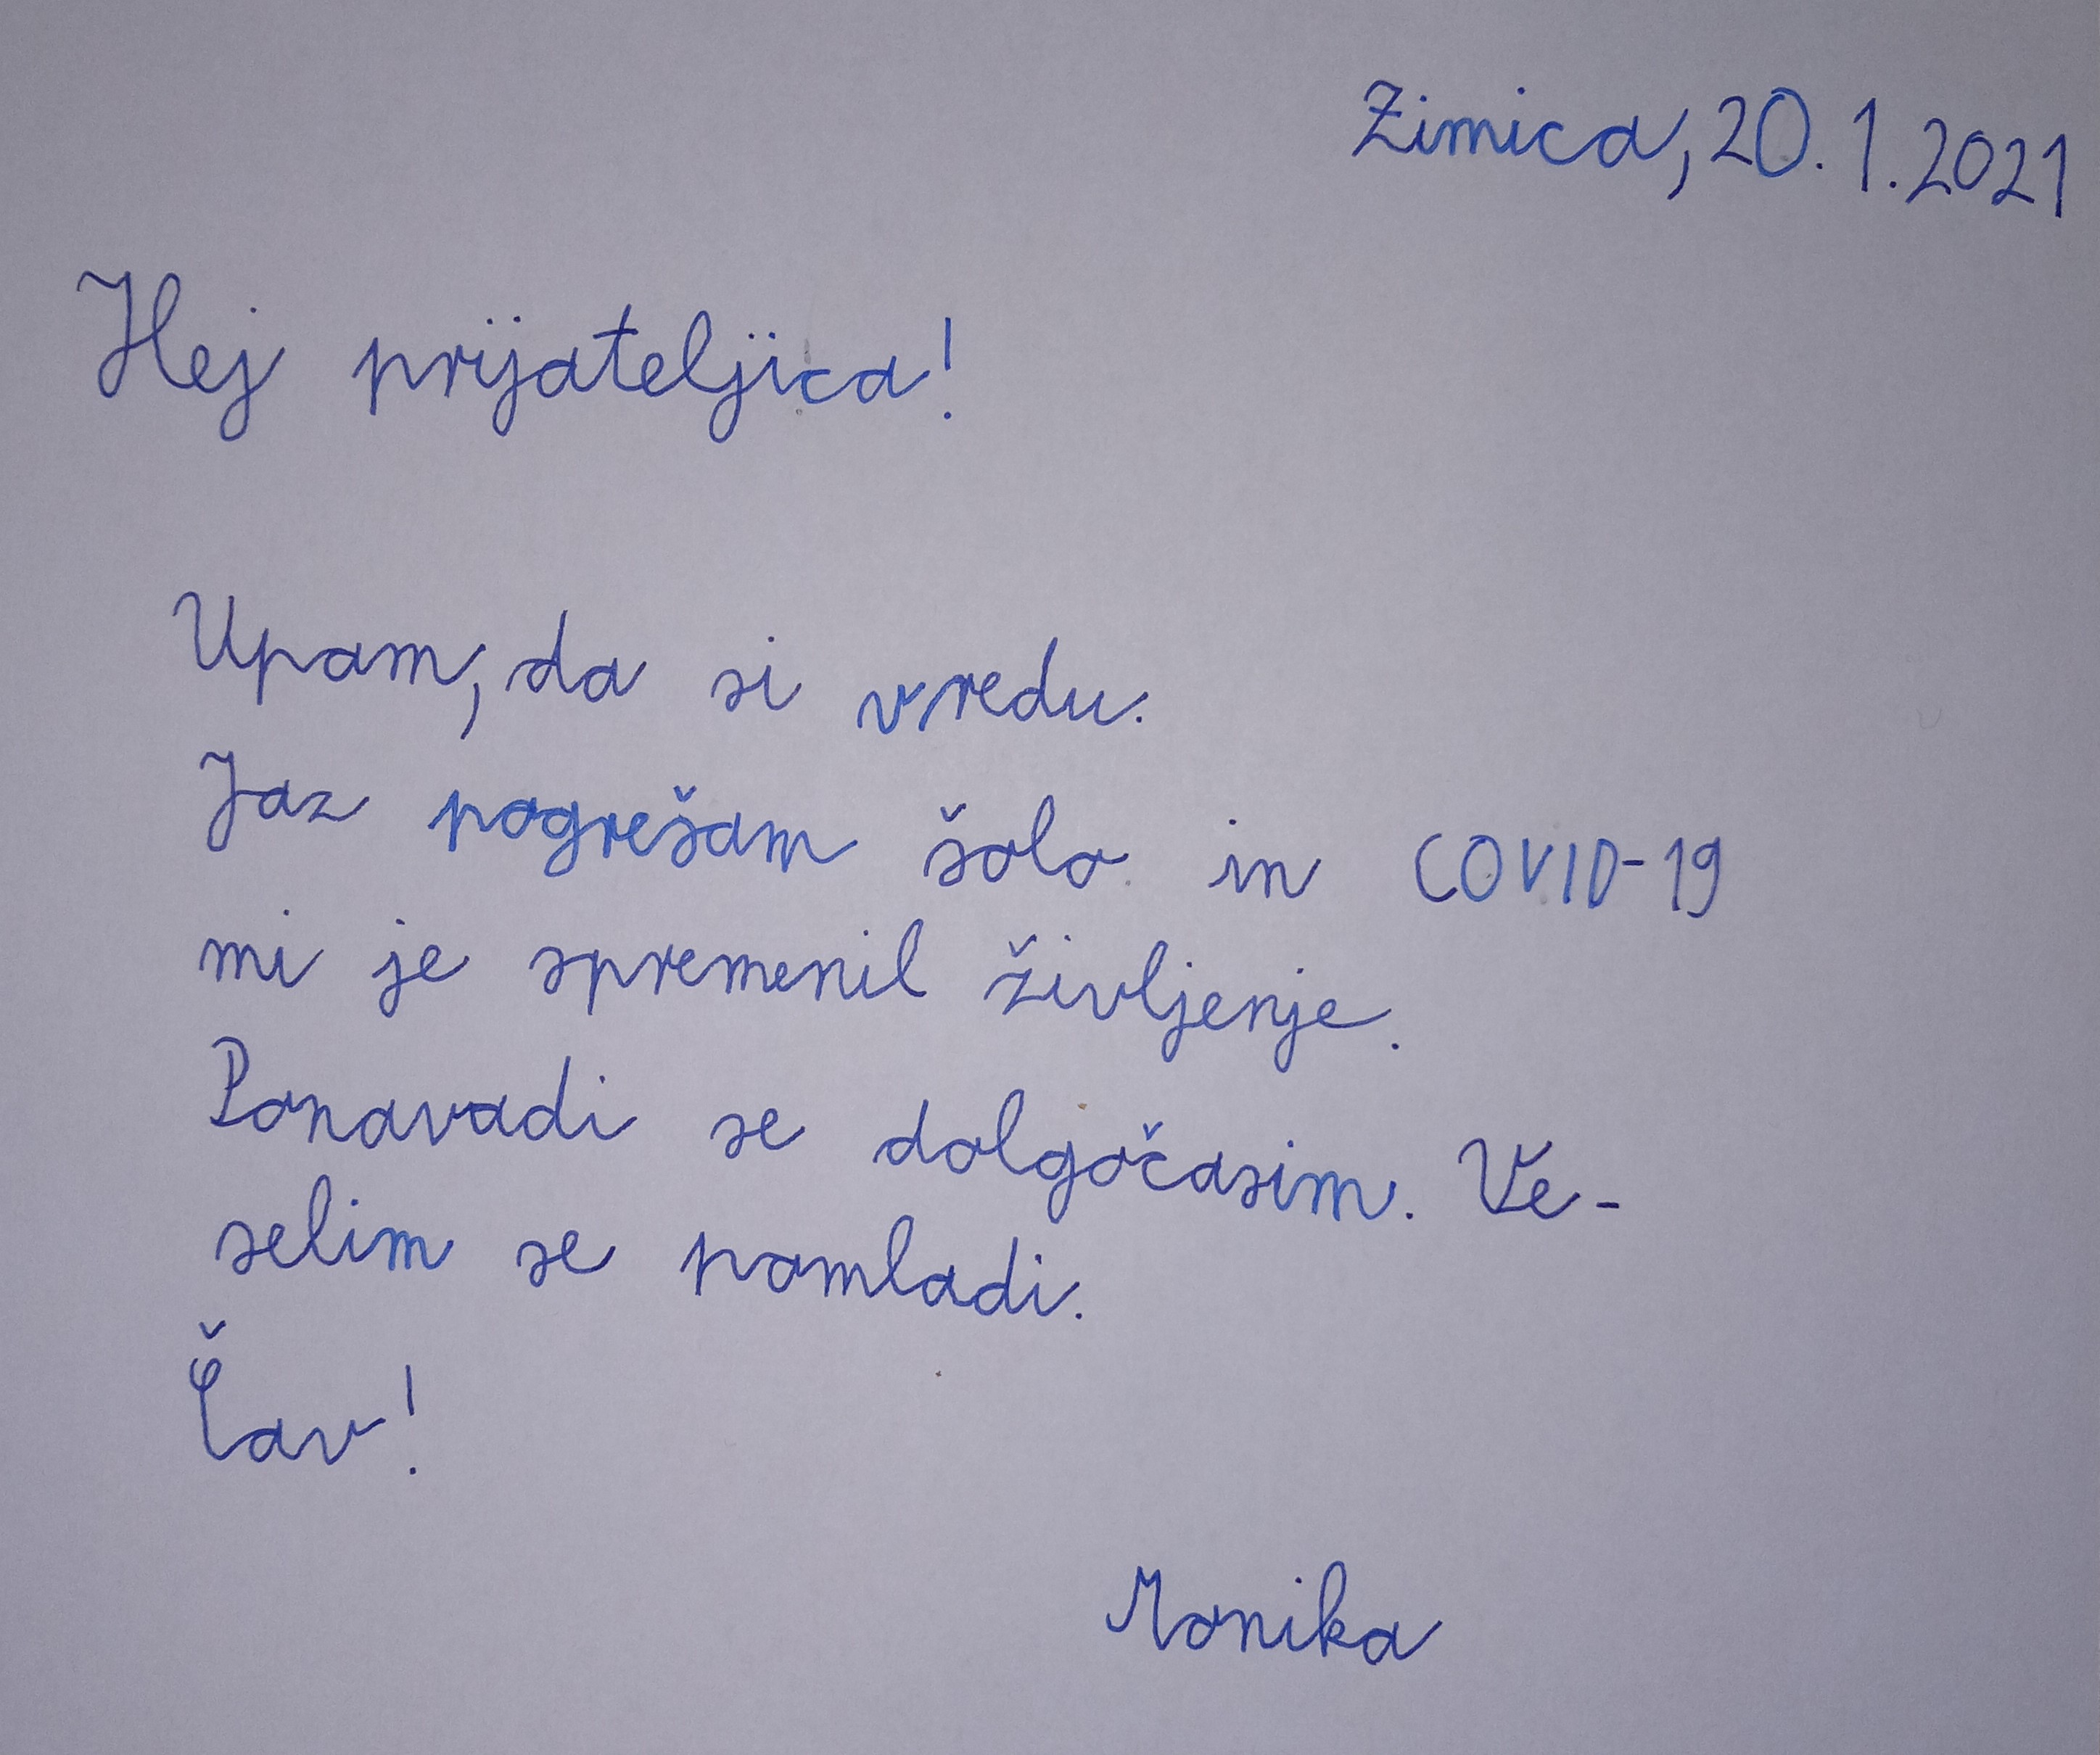 Zimica, 20.1.2021
Hej prijateljica!
Upam, da si vredu.
Jaz pogrešam šolo in COVID-19
mi je spremenil življenje.
Ponavadi se dolgočasim. Ve-
selim se pomladi.
Čav!
Monika